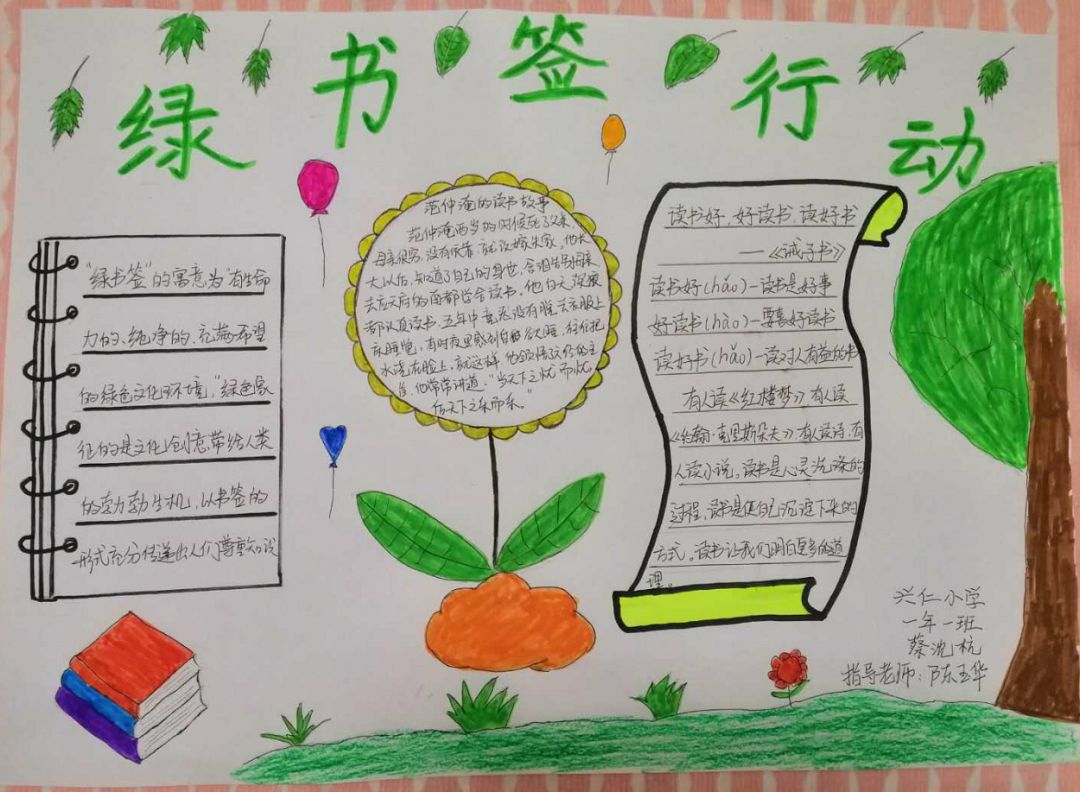 绿书签行动
“绿书签”的寓意为“有生命
力的、纯净的、充满希望
的绿色文化环境,”绿色象
征的是文化创意,带给人类
的勃勃生机,以书签的
形式充分传递出人们尊重知识
范仲淹的读书故事
范仲淹两岁的时候死了父亲,
母亲很穷,没有依靠,就改嫁朱家,他长
大以后,知道了自己的身世,含泪告别母亲
去应天府的南都学舍读书,他白天、深夜
都认真读书,五年中竟然没有脱去衣服上
床睡觉,有时夜里感到昏昏欲睡,往往把
水浇在脸上,就这样 他领悟了六经的主
旨,他常常讲道:“当天下之忧而忧,
后天下之乐而乐。”
读书好,好读书,读好书
——《诫子书》
读书好(hǎo)-读书是好事
好读书(hǎo)-要喜好读书
读好书(hǎo)-读对人有益的书
有人读《红楼梦》,有人读
《约翰·克里斯朵夫》,有人读诗,有
人读小说。读书是心灵洗涤的
过程,读书是使自己沉淀下来的
方式。读书让我们明白更多的道
理。
兴仁小学
一年一班
蔡沈杭
指导老师:陈玉华